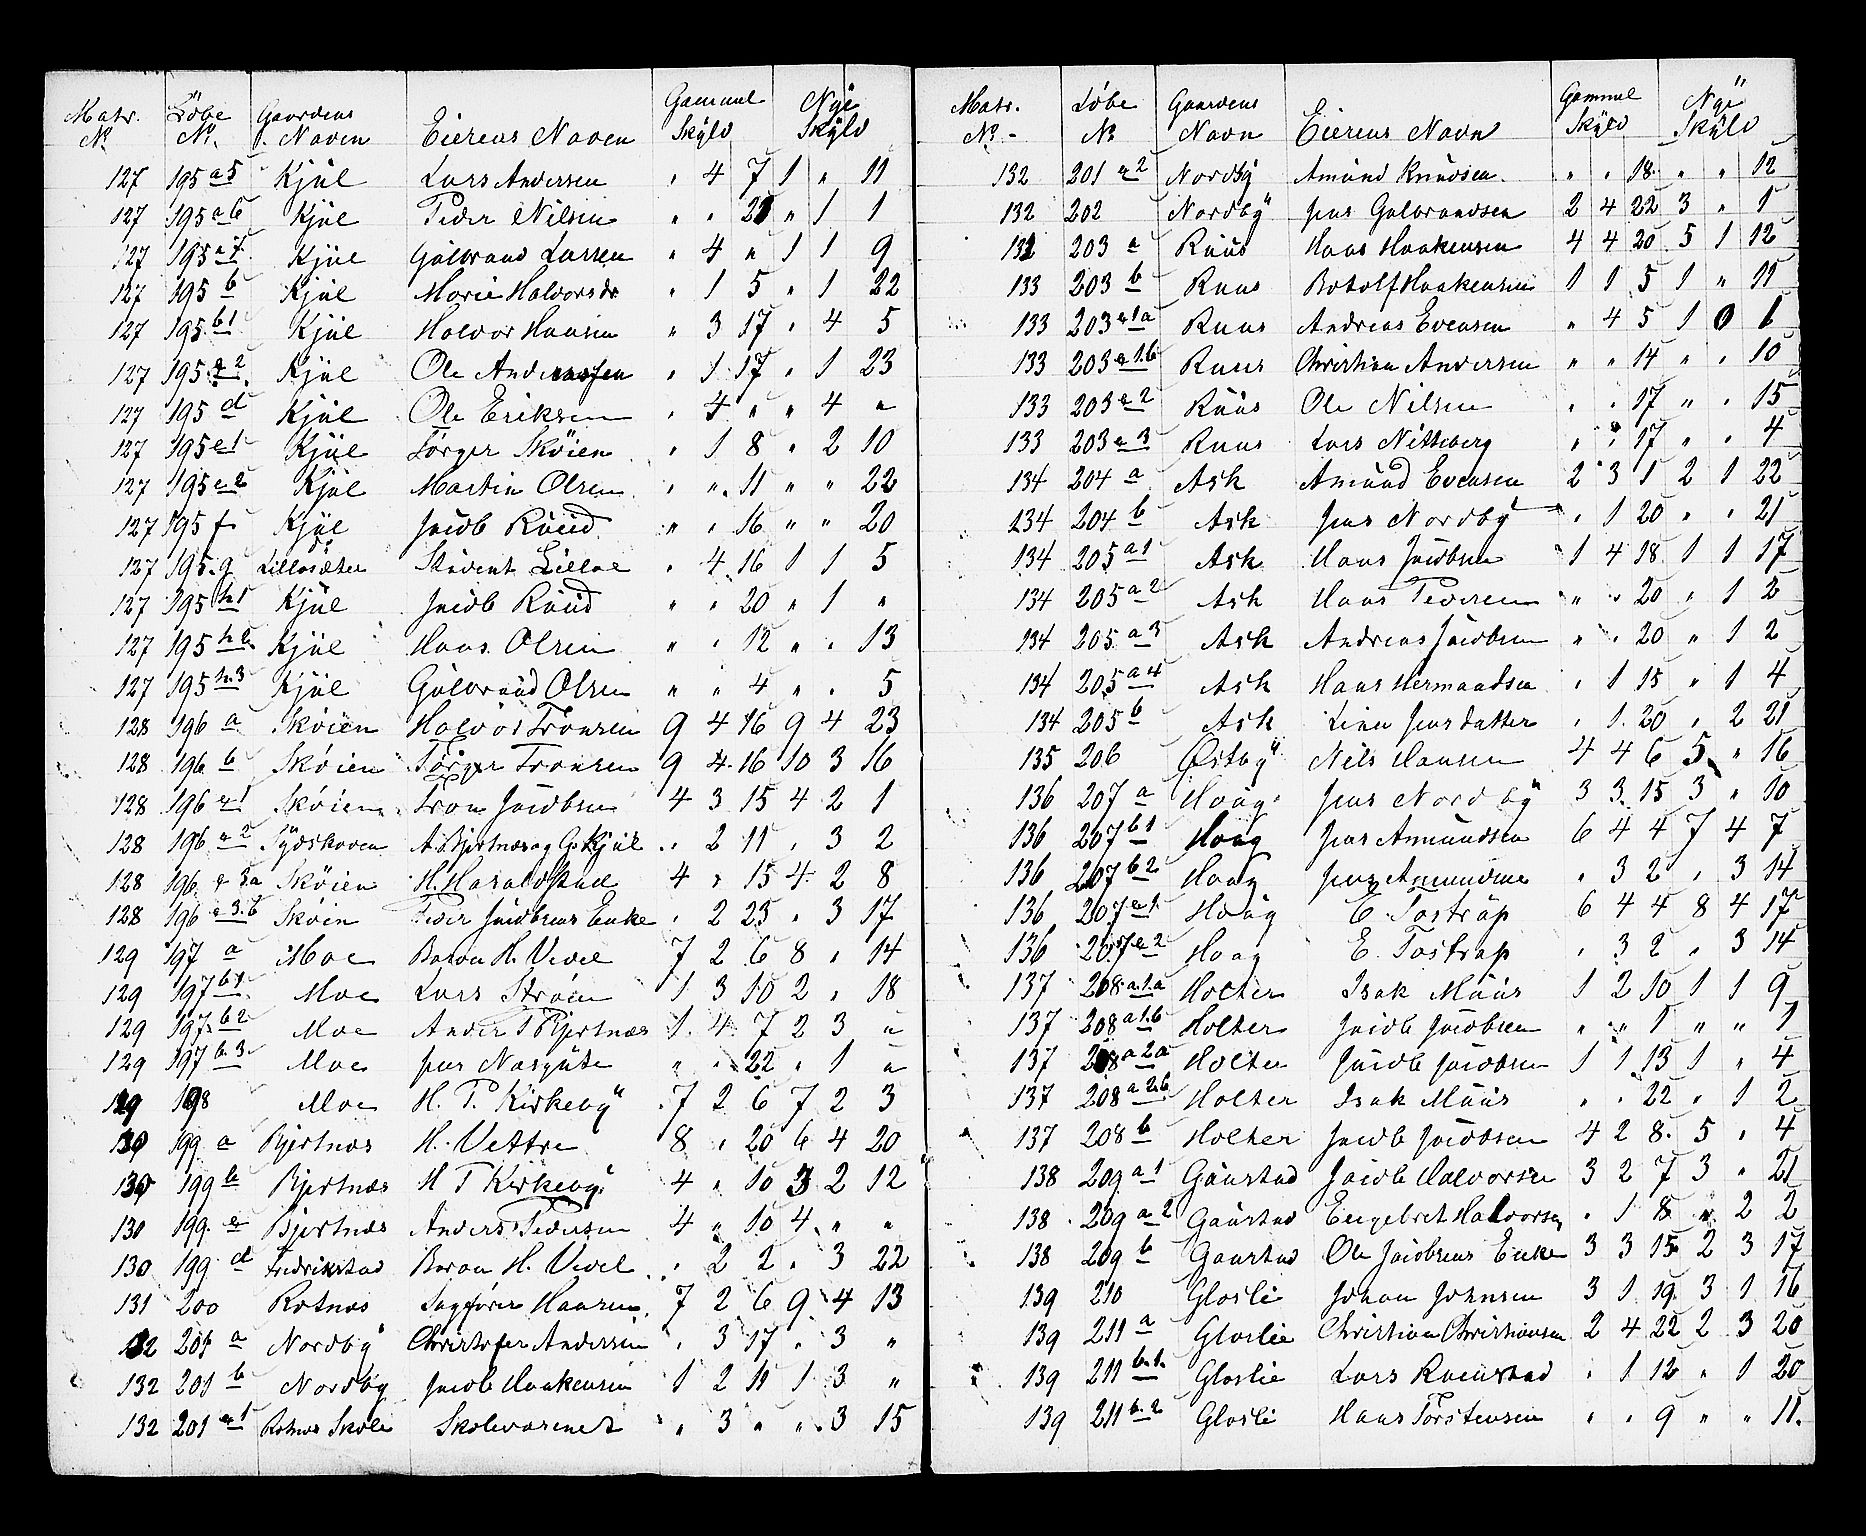 Matr. Löbe Gaardens Eierens Naven Gammel Nÿe
No No. Naven Skÿld Skÿld
127 195 a5 Kjül Lars Andersen " 4 7 1 " 11
127 195 a6 Kjül Peder Nilsen " " 21 " 1 1
127 195 a7 Kjül Gülbrand Larsen " 4 " 1 1 9
127 195 b Kjül Marie Halvorsdr " 1 5 " 1 22
127 195 b1 Kjül Halvor Hansen " 3 17 " 4 5
127 195 2 Kjül Ole Andersen " 1 17 " 1 23
127 195 d Kjül Ole Eriksen " 4 " " 4 "
127 195 e1 Kjül Törger Sköien " 1 8 " 2 10
127 195 e2 Kjül Martin Olsen " " 11 " " 22
127 195 f Kjül Jacob Rüüd " " 16 " " 20
127 195 g Lillesæter Stüdent Lilloe " 4 16 1 1 5
127 195 h1 Kjül Jacob Rüüd " " 20 " 1 "
127 195 h2 Kjül Hans Olsen " " 12 " " 13
127 195 h3 Kjül Gülbrand Olsen " " 4 " " 5
128 196 a Sköien Halvor Tronsen 9 4 16 9 4 23
128 196 b Sköien Törger Tronsen 9 4 16 10 3 16
128 196 c1 Sköien Tron Jacobsen 4 3 15 4 2 1
128 196 c2 Tÿdskoven A. Bjertnæs og G. Kjül " 2 11 " 3 2
128 196 c3a Sköien H. Haraldstad 4 " 15 4 2 8
128 196 c3.b Sköien Peder Jacobsens Enke " 2 23 " 3 17
129 197 a Moe Baron H. Vedel 7 2 6 8 " 14
129 197 b1 Moe Lars Ström 1 3 10 2 " 18
129 197 b2 Moe Anders P Bjertnæs 1 4 7 2 3 "
129 197 b.3 Moe Jens " " 22 " 1 "
129 198 Moe H. P. Kirkebÿ 7 2 6 7 2 3
130 199 a Bjertnæs H. Vettre 8 " 20 6 4 20
130 199 b Bjertnæs H P Kirkebÿ 4 " 10 3 2 12
130 199 c Bjertnæs Anders Pedersen 4 " 10 4 " "
130 199 d Fredrikstad Baron H. Vedel " 2 2 " 3 22
131 200 Rotnæs Sagförer Hansen 7 2 6 9 4 13
132 201 a Nordbÿ Christofer Andersen " 3 17 " 3 "
132 201 b Nordby Jacob Haakensen 1 2 11 1 3 "
132 201 c1 Rotnæs Skole Skolevæsenet " 3 " " 3 15
Matr. Löbe Gaardens Eierens Navn Gammel Nÿe
No - No Navn Skÿld Skÿld
132 201 c2 Nordbÿ Amünd Knüdsen " " 18 " " 12
132 202 Nordbÿ Jens Gülbrandsen 2 4 22 3 " 1
132 203 a Rüüs Hans Haakensen 4 4 20 5 1 12
133 203 b Ruus Botolf Haakensen 1 1 5 1 " 11
133 203 c1a Ruus Andreas Evensen " 4 5 1 0 1
133 203 c1.b Ruus Christian Andersen " " 14 " " 10
133 203 c2 Rüüs Ole Nilsen " " 17 " " 15
133 203 c3 Ruus Lars Nitteberg " " 17 " " 4
134 204 a Ask Amünd Evensen 2 3 1 2 1 22
134 204 b Ask Jens Nordbÿ " 1 20 " " 21
134 205 a1 Ask Hans Jacobsen 1 4 18 1 1 17
134 205 a2 Ask Hans Pedersen " " 20 " 1 2
134 205 a3 Ask Andreas Jacobsen " " 20 " 1 2
134 205 a4 Ask Hans Hermandsen " 1 15 " 1 4
134 205 b Ask Line Jensdatter " 1 20 " 2 21
135 206 Østbÿ Nils Hansen 4 4 6 5 " 16
136 207 a Haüg Jens Nordbÿ 3 3 15 3 " 10
136 207 b1 Haüg Jens Amündsen 6 4 4 7 4 7
136 207 b2 Haug Jens Amundsen " 3 2 " 3 14
136 207 c1 Haüg E. Tostrüp 6 4 4 8 4 17
136 207 c2 Haug E. Tostrup " 3 2 " 3 14
137 208 a.1.a Holter Isak Müüs 1 2 10 1 1 9
137 208 a1.b Holter Jacob Jacobsen " " 1 " " 1
137 208 a2a Holter Jacob Jacobsen 1 1 13 1 " 4
137 208 a2.b Holter Isak Müüs " " 22 " 1 2
137 208 b Holter Jacob Jacobsen 4 2 8 5 " 4
138 209 a1 Gaüstad Jacob Halvorsen 3 2 7 3 " 21
138 209 a2 Gaüstad Engebret Halvorsen " 1 8 " 2 2
138 209 b Gaustad Ole Jacobsens Enke 3 3 15 2 3 17
139 210 Glosli Johan Johnsen 3 1 19 3 1 16
139 211 a Gloslie Christian Christiansen 2 4 22 2 3 20
139 211 b.1. Gloslie Lars Ruenstad " 1 12 " 1 20
139 211 b.2 Glosli Hans Torstensen " " 9 " " 11.